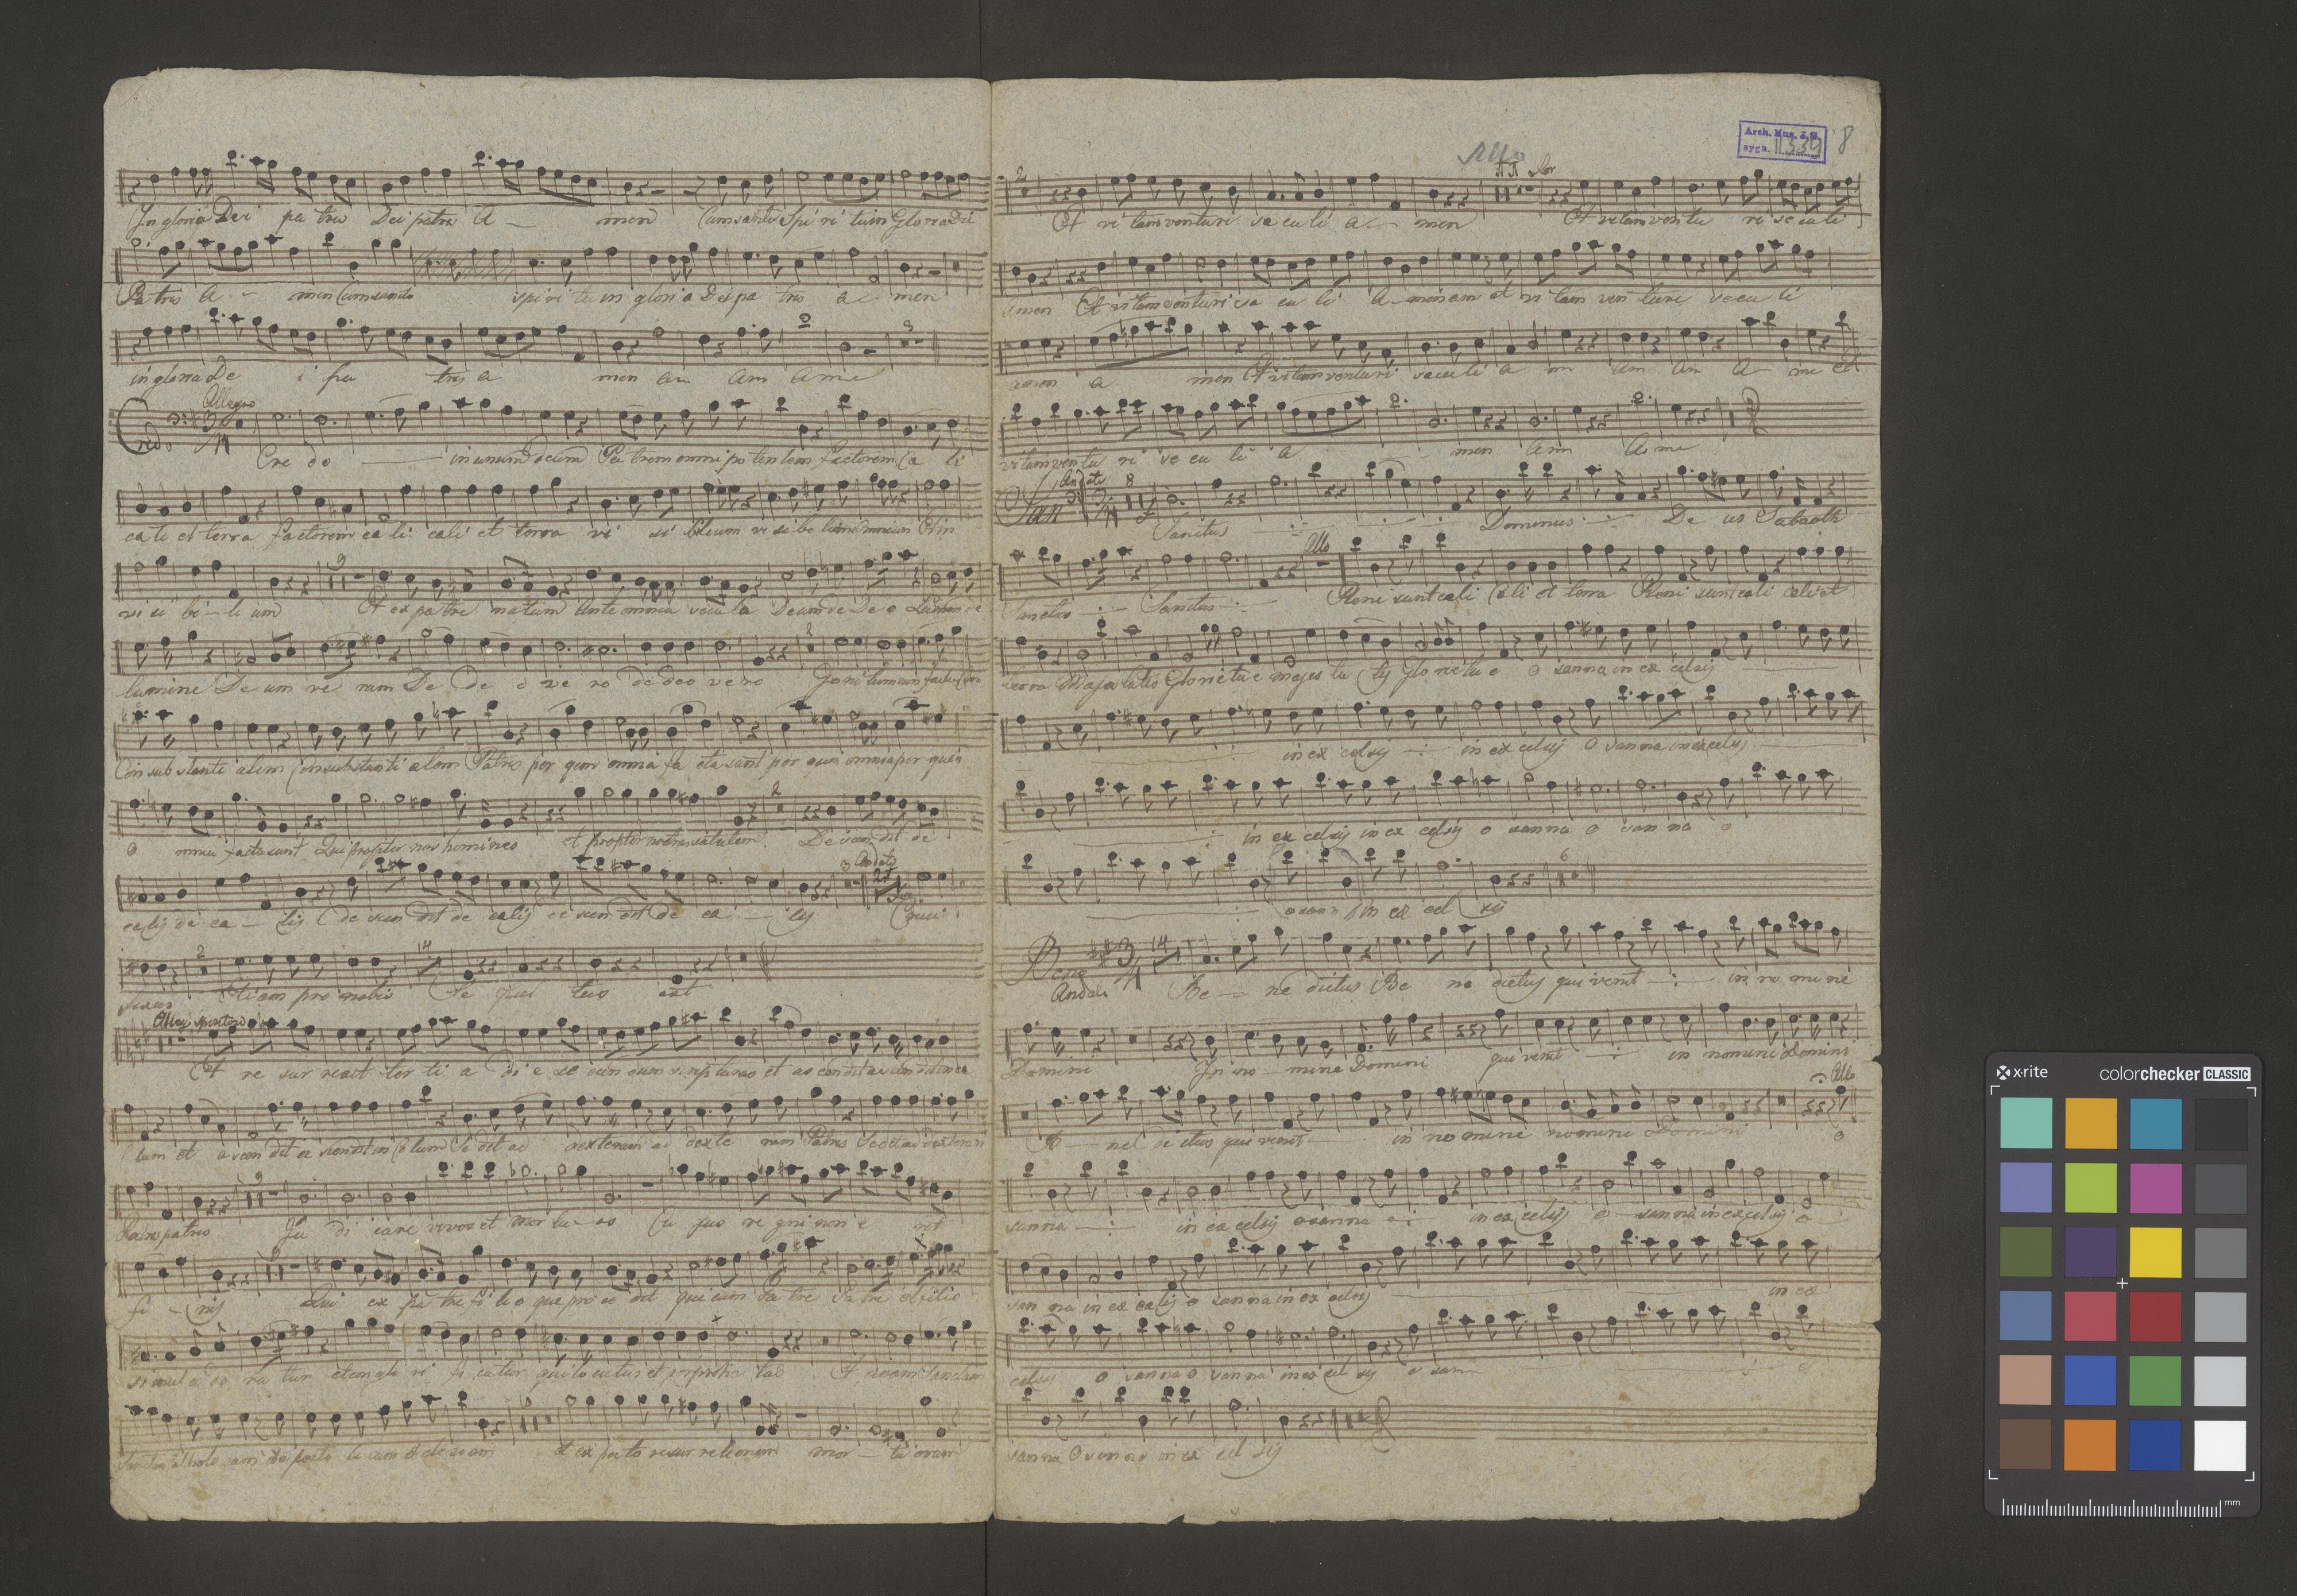 In gloria Dei patris Dei patris A - men Cum sancto Spiritu in Gloria Dei
Patris A - men Cum sancto spiritu in gloria Dei patris a - men
in gloria De i pa tris a men am am ame
Allegro
Credo
Cre do in unum deum Patrem omnipotentem factorem Ca li
ca li et terra factorem ca li cali et terra vi si bilium visibi lium omnium Et in
vi si bi - li um Et ex patre natum Ante omnia secula Deum de De o Lumen de
lumine De um ve rum De De o ve ro de deo vero Genitum non factum Con
Con substanti alem consubstanti alem Patris per quem omnia fa cta sunt per quem omnia per quem
o mnia facta sunt Qui propter nos homines et propter nostram salutem Descen dit de
calis de ca - lis descen dit de calis descen dit de ca - lis
3 Andte
Cruci
fixus 2 Etiam pro nobis 14 Se pul tus est
Alleg spiritoso
Et re sur rexit ter ti a di e se cun dum scripturas et ascendit ascendit in ca
lum et ascen dit ascendit in Celum Se det ad dexteram ad dexte ram Patris Sedet ad dexteram
Patris 9 Ju di care vivos et mor tu - os Cu jus re gni non e rit
fi - nis 9 Qui ex pa tre fi li o que pro ce dit qui cum Pa tre Patre et filio
simul a do ra tur et con glo ri fi catur qui locutus est per prophe tas Et unam Sanctam
Sanctam Catholicam et aposto li cam Ecclesiam 6 et expecto resurrectionem mor - tu orum
Arch. Muz. J.G.
sygn. II 339
8
2 Et vi tam venturi se cu li a - men Et vitam ventu ri se cu li
amen Et vitam venturi se cu li A - men am et vi tam ven turi secu li
amen a men Et vitam venturi seculi a m am am A - me et
vitam ventu ri se cu li a men am A me
Andte 8
San
Sanctus Dominus De us Sabaoth
Allo
Sanctus Sanctus Pleni sunt cali Cali et terra Pleni sunt cali cali et
terra Majestatis Glorie tue majes ta tis glorie tue o sanna in ex celsis
in ex celsis in ex celsis O sanna in excelsis
in ex celsis in ex celsis o sanna o san na o
6
osann in ex cel sis
Bene 3/4 14
Andte Be - ne dictus Be ne dictus qui venit in no mine
Domini In no - mine Domini qui venit in nomine Domini
Allo
Be - ne di ctus qui venit in no mine nomine Domini O
sanna in ex celsis osanna in ex celsis o - sanna in excelsis o
san na in ex celsis o sanna in ex celsis in ex
celsis o sanna o sanna in ex cel sis o san
sanna O sanna in ex cel sis